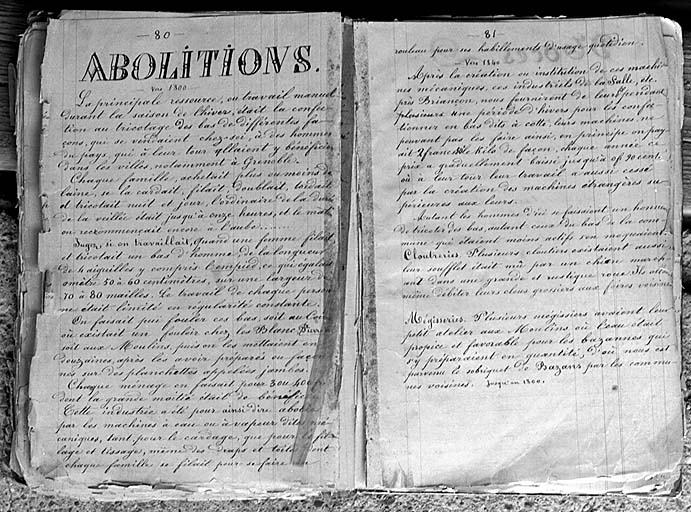 — 80 —
ABOLITIONS.
Vers 1800
La principale ressource, ou travail manuel
durant la saison de l'hiver, était la confec
tion au tricotage des bas de différentes fa=
çons, que se vendaient chez-soi, à des hommes
du pays, qui à leur tour allaient y bénéficier
dans les villes notamment à Grenoble.
Chaque famille, achetait plus ou moins de
laine, on la cardait, filait doublait, tordait
et tricotait nuit et jour, l'ordinaire de la durée
de la veillée était jusqu'à onze heures, et le matin
on recommençait encore à l'aube.......
Jugez, si on travaillait, quand une femme filait
et tricotait un bas d'homme de la longueur
de 4 aiguilles y compris l'empied, ce qui égalait
omètre 50 à 60 centimètres, sur une largeur de
70 à 80 mailles. Le travail de chaque person
ne était limité en régularité constante.
On faisait puis fouler ces bas, soit au
où existait un fouloir chez les Blanc
soit aux Moulins puis on les mettaient en
douzaines, après les avoir préparés ou façon
nés sur des planchettes appelées jambes.
Chaque ménage en faisait pour 300 400 f
dont la grande moitié était de bénéfice
Cette industrie a été pour ainsi dire abolie
par les machines à eau ou à vapeur dites mé
caniques, tant pour le cardage, que pour le fi
lage et tissage, même des draps et toiles dont
chaque famille se filait pour se faire
— 81 —
rouleau pour ses habillements d'usage quotidien.
Vers 1840
Après la création ou institution de ces machi=
nes mécaniques, ces industriels de la Salle, etc.
près Briançon, nous fournirent de leurs pendant
plusieurs une période d'hivers pour les confec=
tionner en bas dits, à cotte, leurs machines ne
pouvant pas les faire ainsi, en principe on pay
ait 2 francs le Kilo de façon, chaque année ce
prix a graduellement baissé jusqu'à of 90 cent.
où à leur tour leur travail a aussi cessé
par la création des machines étrangères su=
périeures aux leurs.
Autant les hommes d'ici se faisaient un honneur
de tricoter des bas, autant ceux du bas de la com
mune qui étaient moins actifs s'en moquaient.
Cloutreries. Plusieurs cloutiers existaient aussi
leur soufflet était mû par une chien march
ant dans une grande et rustique roue. Ils
même débiter leurs clous grossiers aux foires voisines
Mégisseries. Plusieurs mégissiers avaient leur
petit atelier aux Moulins où l'eau était
propice et favorable pour les bazannes que
y préparaient en quantité, d'où nous est
parvenu le sobriquet de Bazans par les commu
nes voisines. Jusqu'en 1800.